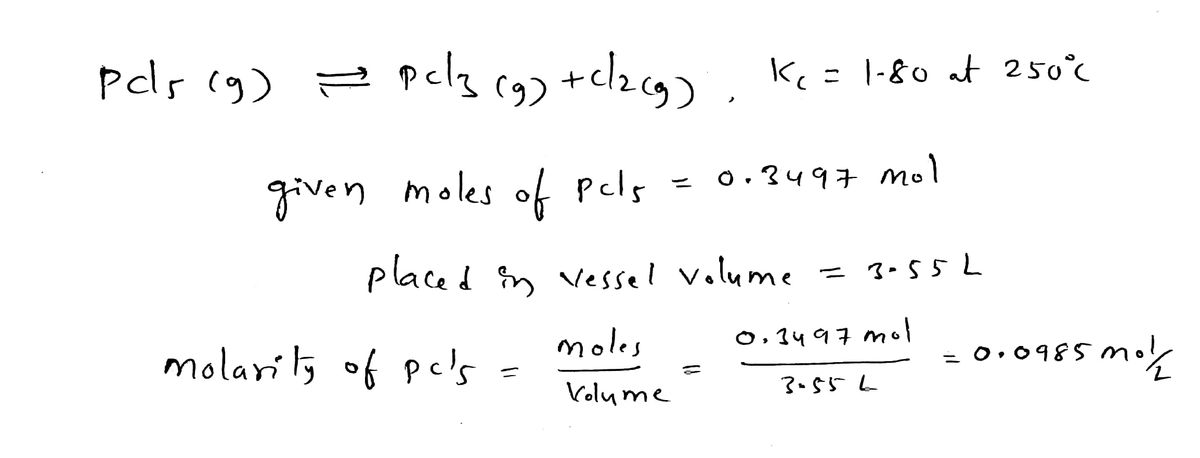 pcl5 (g) ⇌ pcl3 (g) + cl2 (g) , Kc = 1.80 at 250°c
given moles of pcl5 = 0.3497 mol
placed in vessel volume = 3.55 L
molarity of pcl5 = moles / Volume = 0.3497 mol / 3.55 L = 0.0985 mol/L